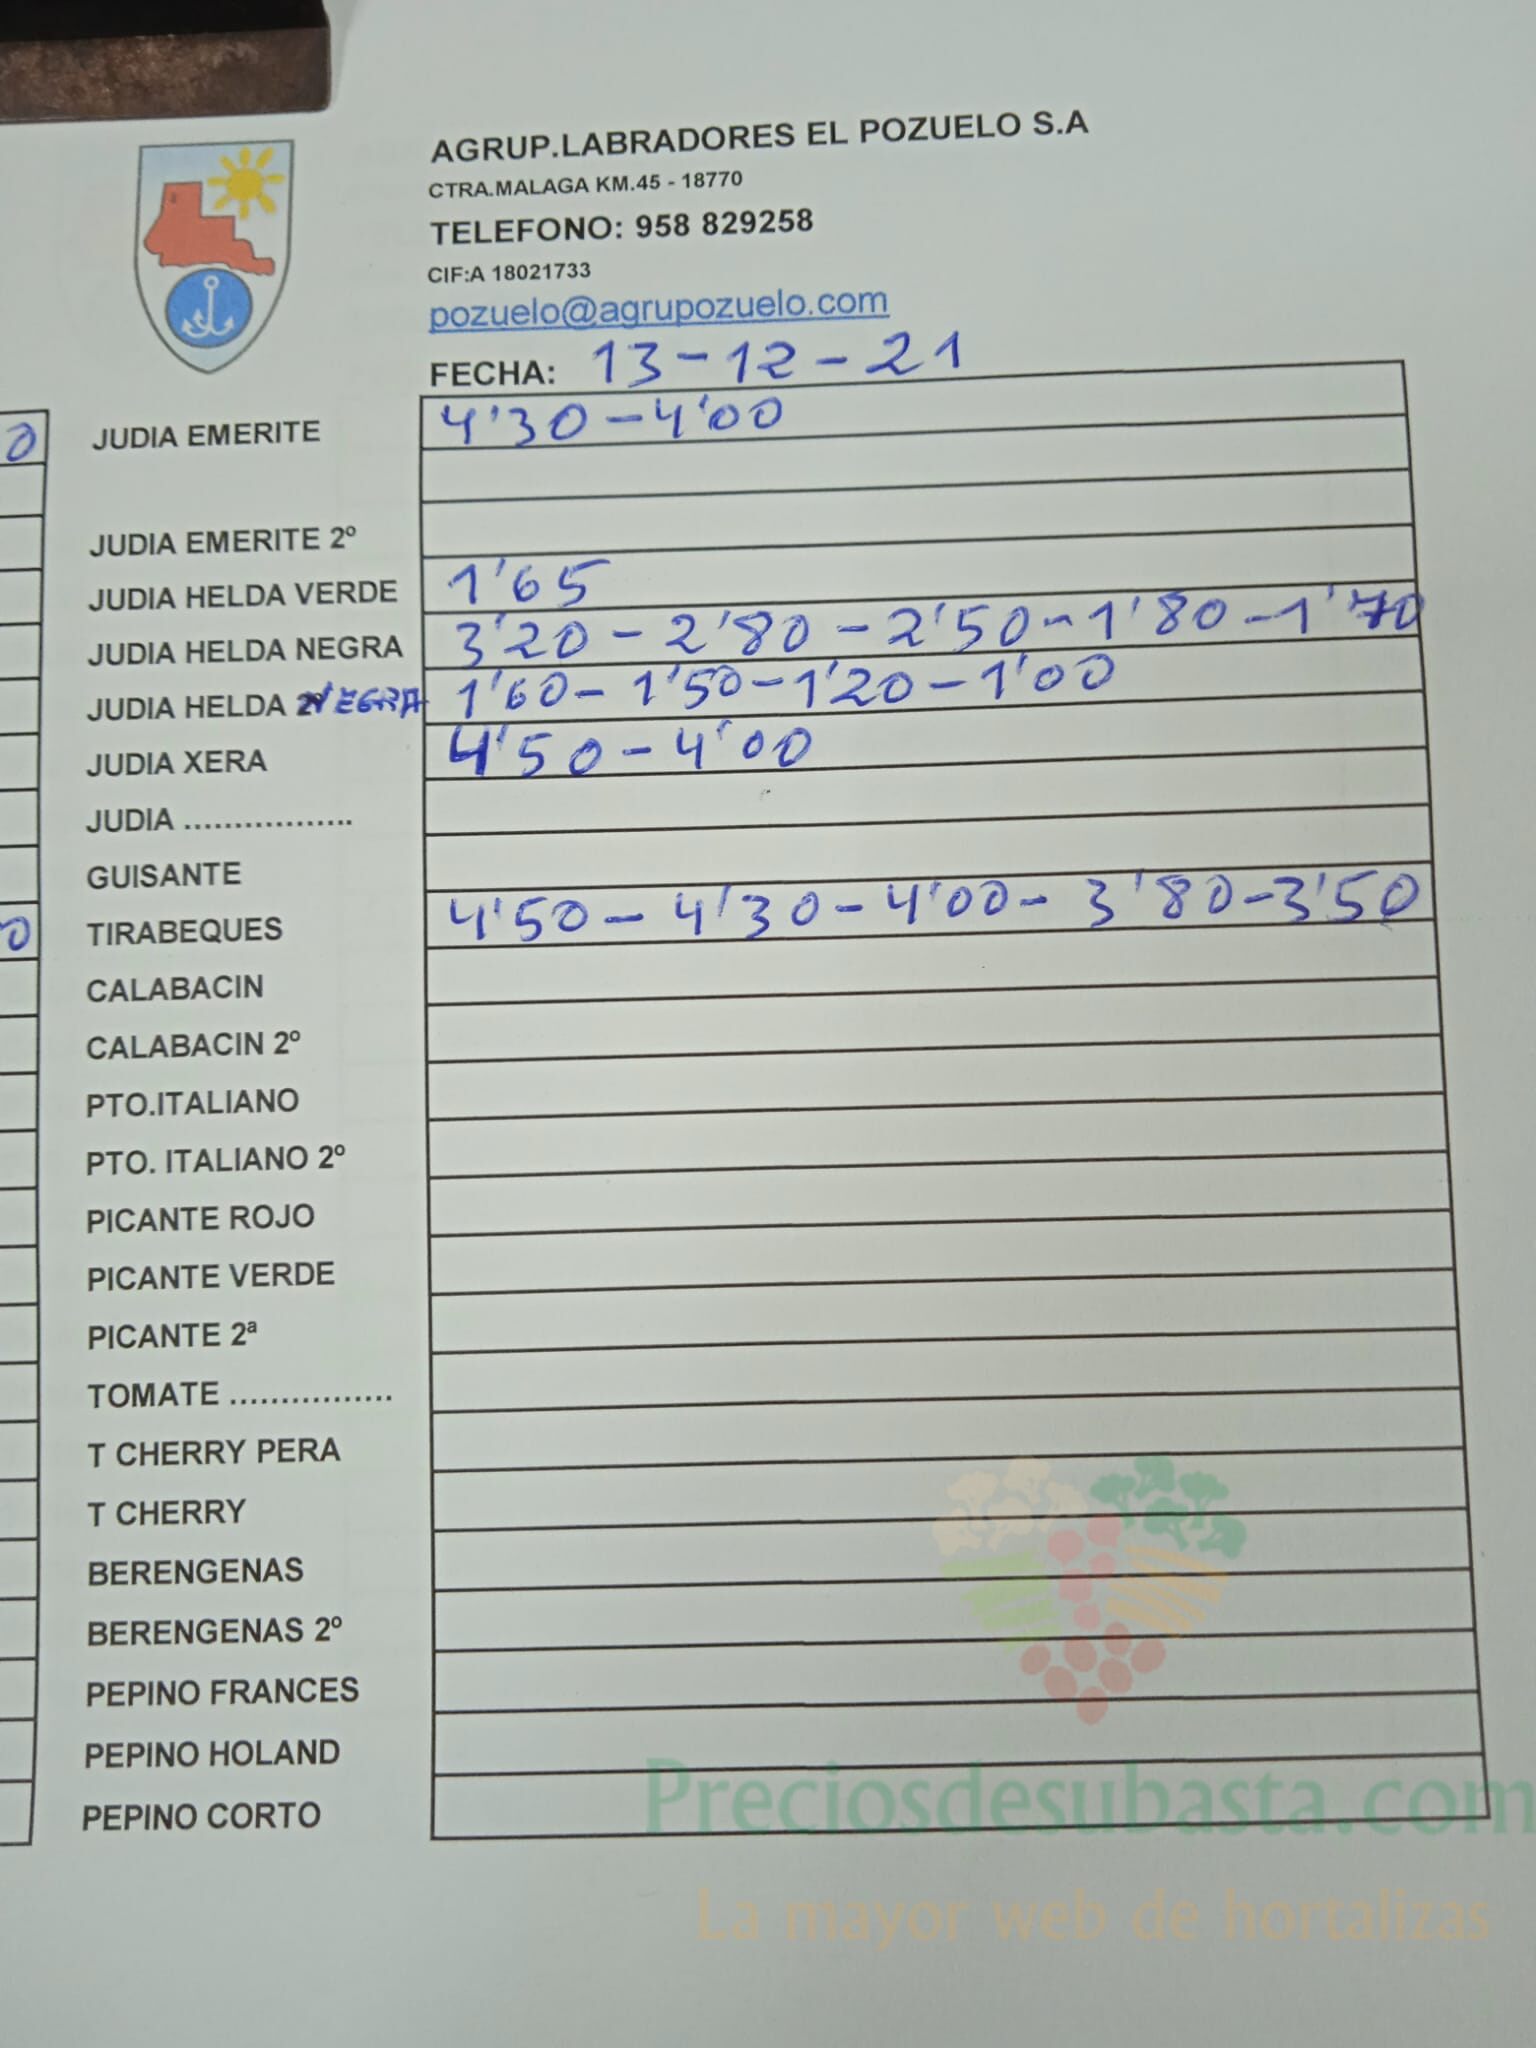 AGRUP.LABRADORES EL POZUELO S.A
CTRA.MALAGA KM.45 - 18770
TELEFONO: 958 829258
CIF:A 18021733
pozuelo@agrupozuelo.com
FECHA: 13-12-21
0 JUDIA EMERITE 4'30-4'00
JUDIA EMERITE 2º
JUDIA HELDA VERDE 1'65
JUDIA HELDA NEGRA 3'20-2'80-2'50-1'80-1'70
JUDIA HELDA NEGRA 1'60-1'50-1'20-1'00
JUDIA XERA 4'50-4'00
JUDIA .................
GUISANTE
0 TIRABEQUES 4'50-4'30-4'00-3'80-3'50
CALABACIN
CALABACIN 2º
PTO.ITALIANO
PTO. ITALIANO 2º
PICANTE ROJO
PICANTE VERDE
PICANTE 2ª
TOMATE ................
T CHERRY PERA
T CHERRY
BERENGENAS
BERENGENAS 2º
PEPINO FRANCES
PEPINO HOLAND
PEPINO CORTO
Preciosdesubasta.com
La mayor web de hortalizas